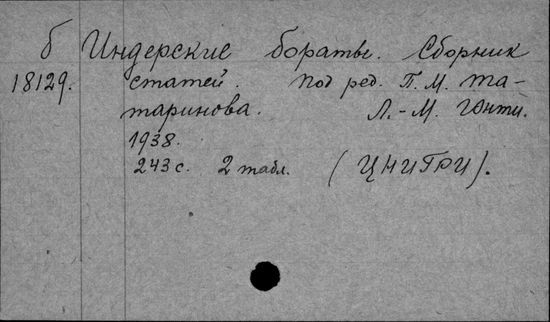 б Индерские бораты. Сборник
18129. статей. Под ред. П. М. Та-
таринова. Л.-М. Гонти.
1938.
243 с. 2 табл. (ЦНИГРИ).